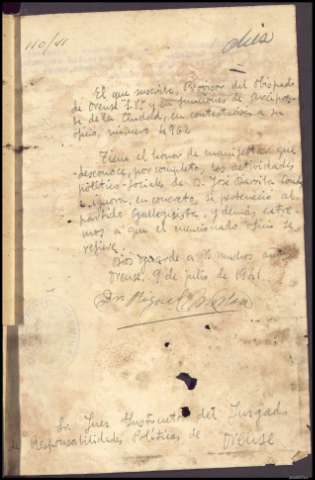 110/41
diez
El que suscribe, Provisor del Obispado
de Orense S. P. y en funciones de Arcipres-
te de la Ciudad, en contestación a su
oficio, número 4962
Tiene el honor de manifestar que
desconoce, por completo, las actividades
político-sociales de D. José García
e ignora, en concreto, si perteneció al
partido Galleguista, y demás, extre-
mos a que el mencionado oficio se
refiere.
Dios guarde a Vd. muchos años
Orense, 9 de julio de 1941.
Dr. Miguel
Sr. Juez Instructor del Juzgado
de Responsabilidades Políticas de Orense